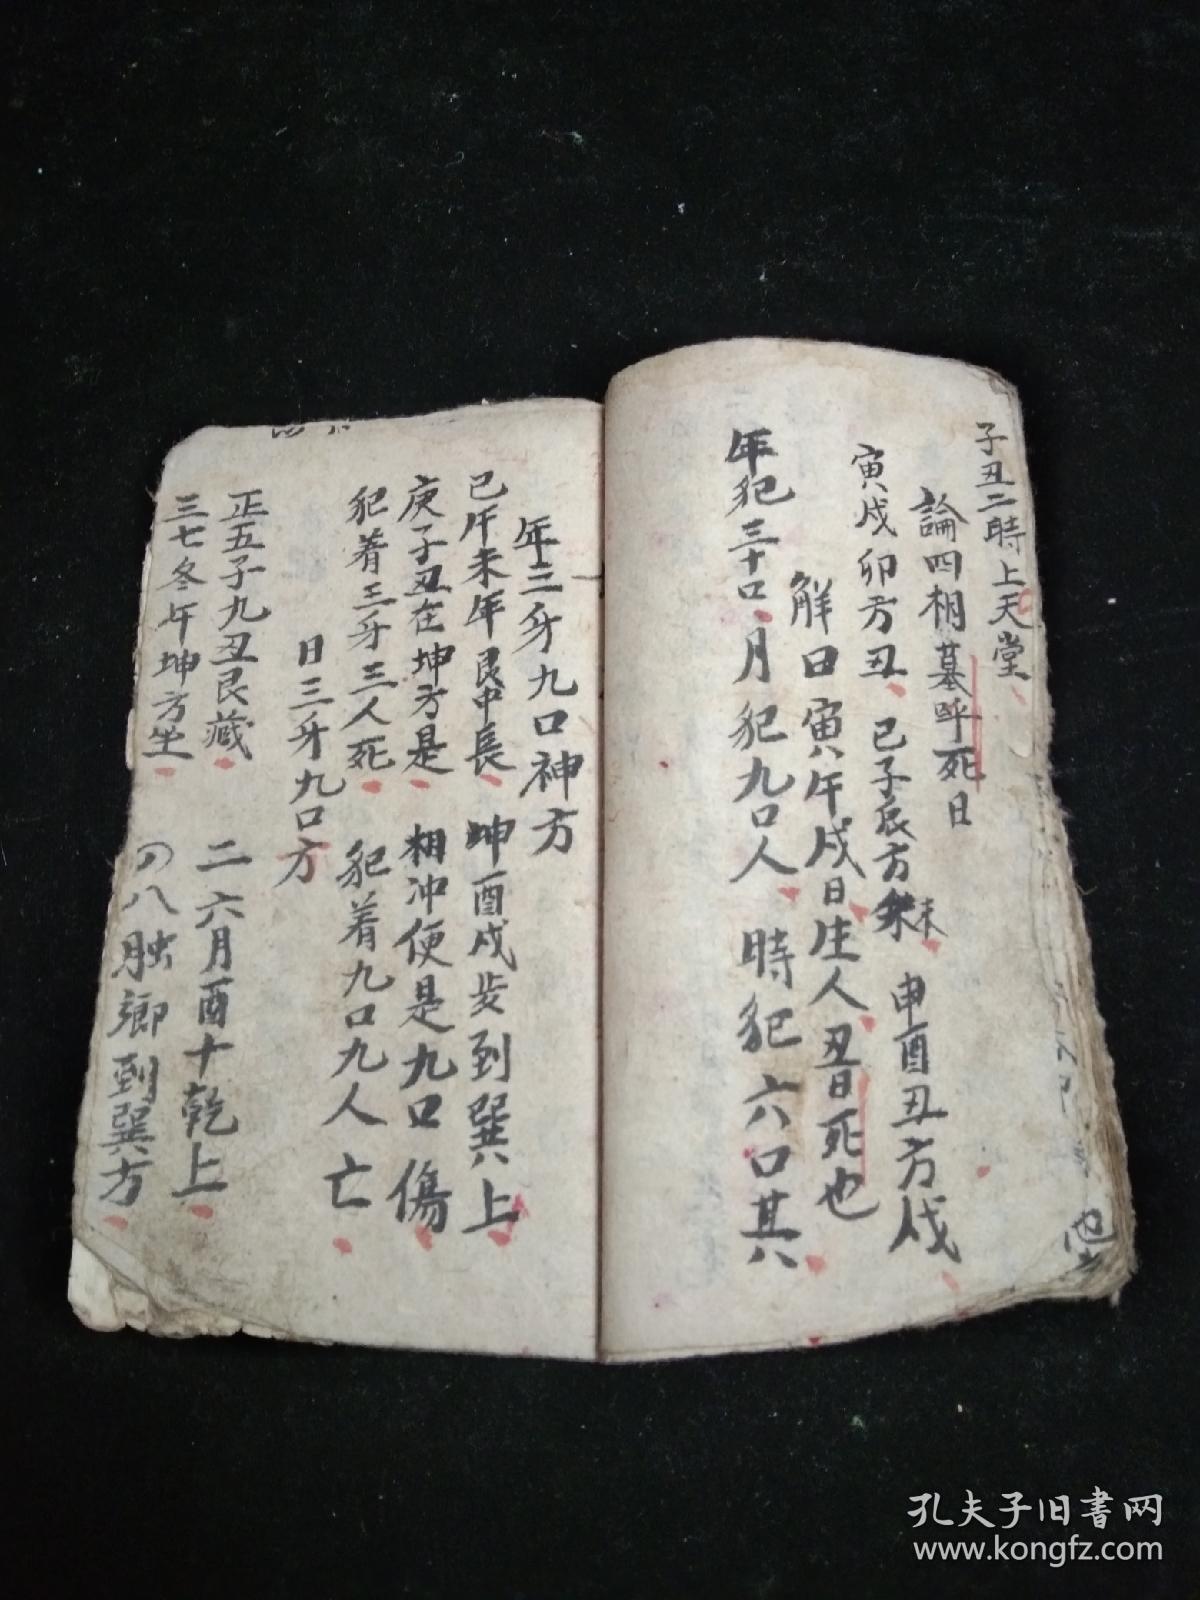 子丑二時上天堂
論四相墓呼死日
寅戌卯方丑 巳子辰方未 申酉丑方戌
解日寅午戌日生人丑日死也
年犯三十口月犯九口人時犯六口其八
年三牙九口神方
巳午未年艮中長 坤酉戌步到巽上
庚子丑在坤方是 相冲便是九口傷
犯着三牙三人死 犯着九口九人亡
日三牙九口方
正五子九丑艮藏 二六月酉十乾上
三七冬年坤方坐 八 鄉到巽方
孔夫子旧书网
www.kongfz.com